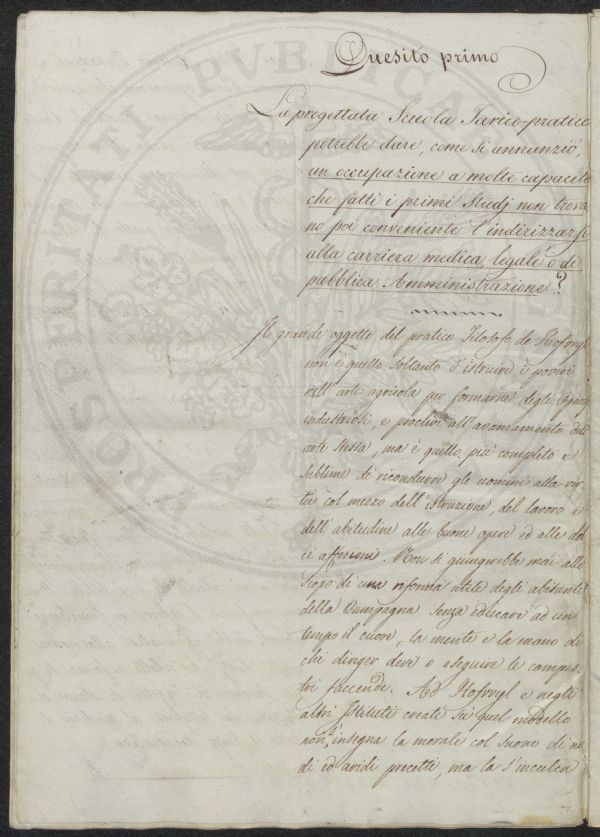 Quesito primo
La progettata Scuola Teorico-pratica
potrebbe dare, come si annunziò,
un occupazione a molte capacità
che fatti i primi studj non trova
no poi conveniente l'indirizzarsi
alla carriera medica, legale o di
pubblica Amministrazione?
Il grande oggetto del pratico Filosofo de Hofwyl
non è quello soltanto d'istruire i poveri
nell'arte agricola per formarne degli Operaj
industriosi, e proclivi all'avanzamento dell'
arte stessa, ma è quello più completo e
sublime di ricondurre gli uomini alla vir
tù col mezzo dell'istruzione, del lavoro e
dell'abitudine alle buone opere ed alle dol
ci affezioni. Non si giungerebbe mai allo
scopo di una riforma utile degli abitanti
della Campagna senza educare ad un
tempo il cuore, la mente e la mano di
chi diriger deve o eseguire le campes
tri faccende. Ad Hofwyl e negli
altri Istituti creati su quel modello
non s'insegna la morale col suono di nu
di ed aridi precetti, ma la s'inculca
PROSPERITATI PUBLICAE